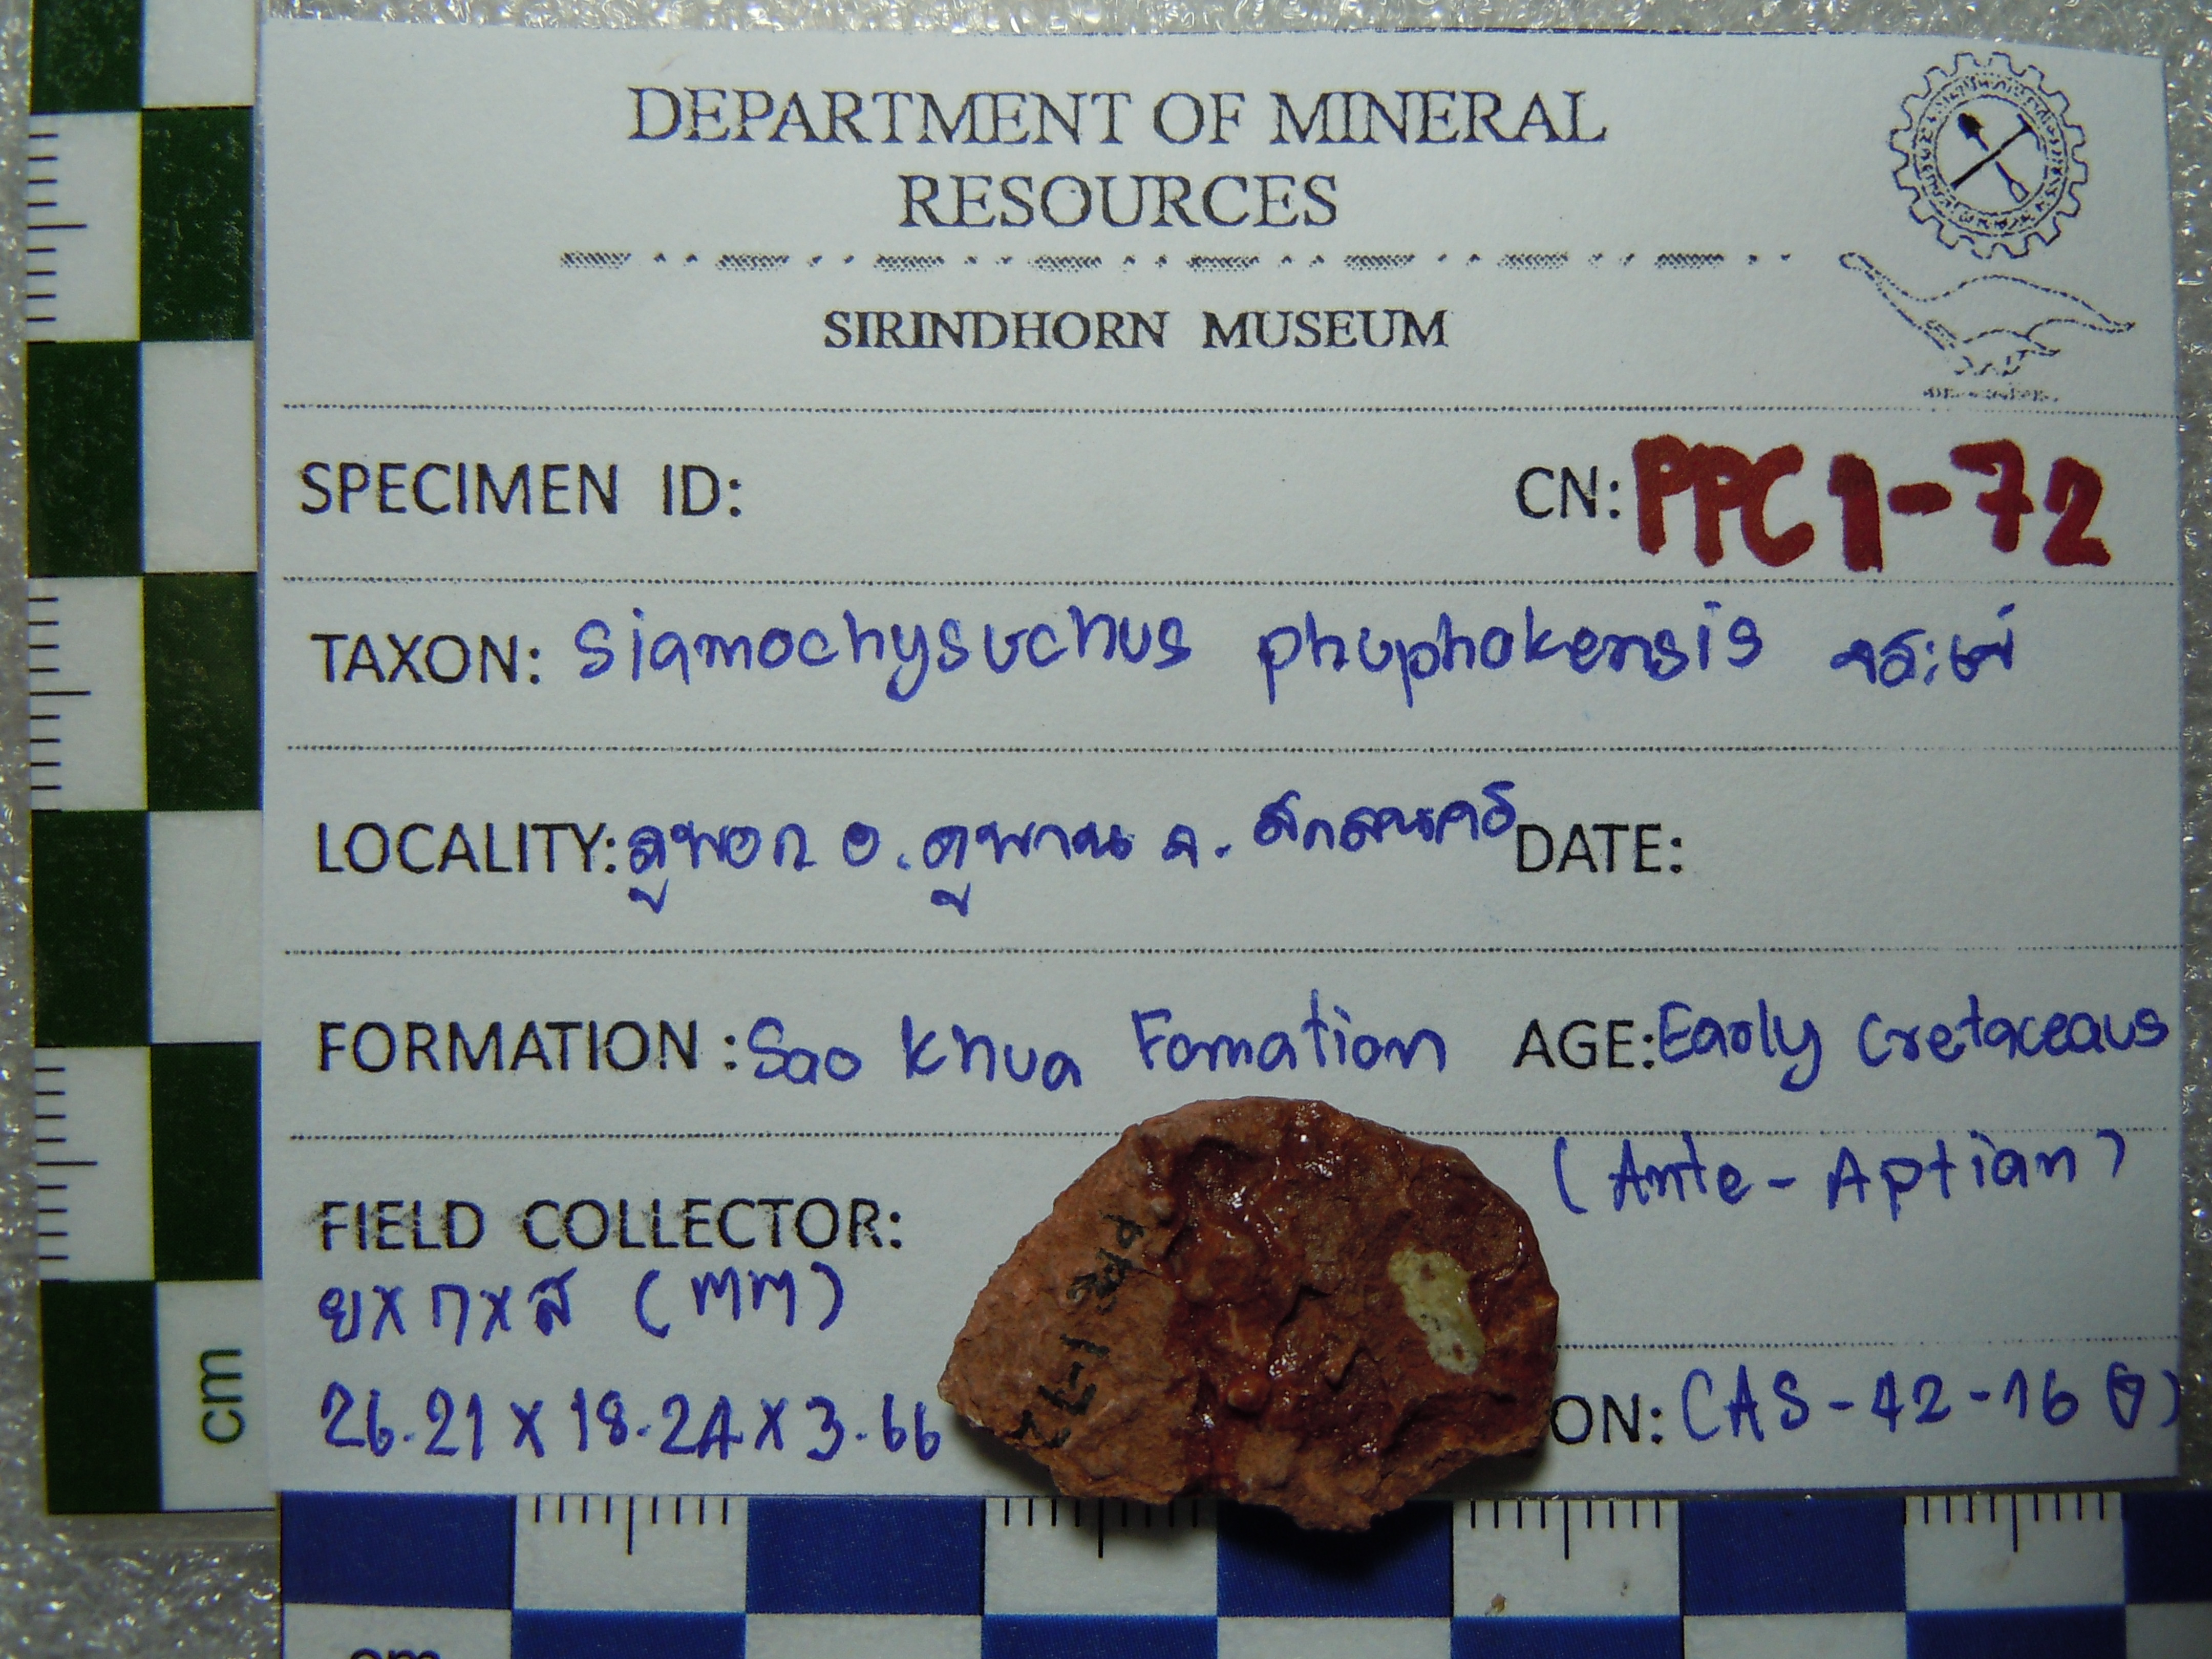 DEPARTMENT OF MINERAL
RESOURCES
SIRINDHORN MUSEUM
SPECIMEN ID: CN: PPC1-72
TAXON: Siamochysuchus phuphokensis จระเข้
LOCALITY: ภูพอก อ. ภูพาน จ. สกลนคร DATE:
FORMATION : Sao Khua Fomation AGE: Early Cretaceaus
(Ante-Aptian)
FIELD COLLECTOR:
ยxกxส (MM)
26.21 x 18.24 x 3.66 ON: CAS-42-16
cm